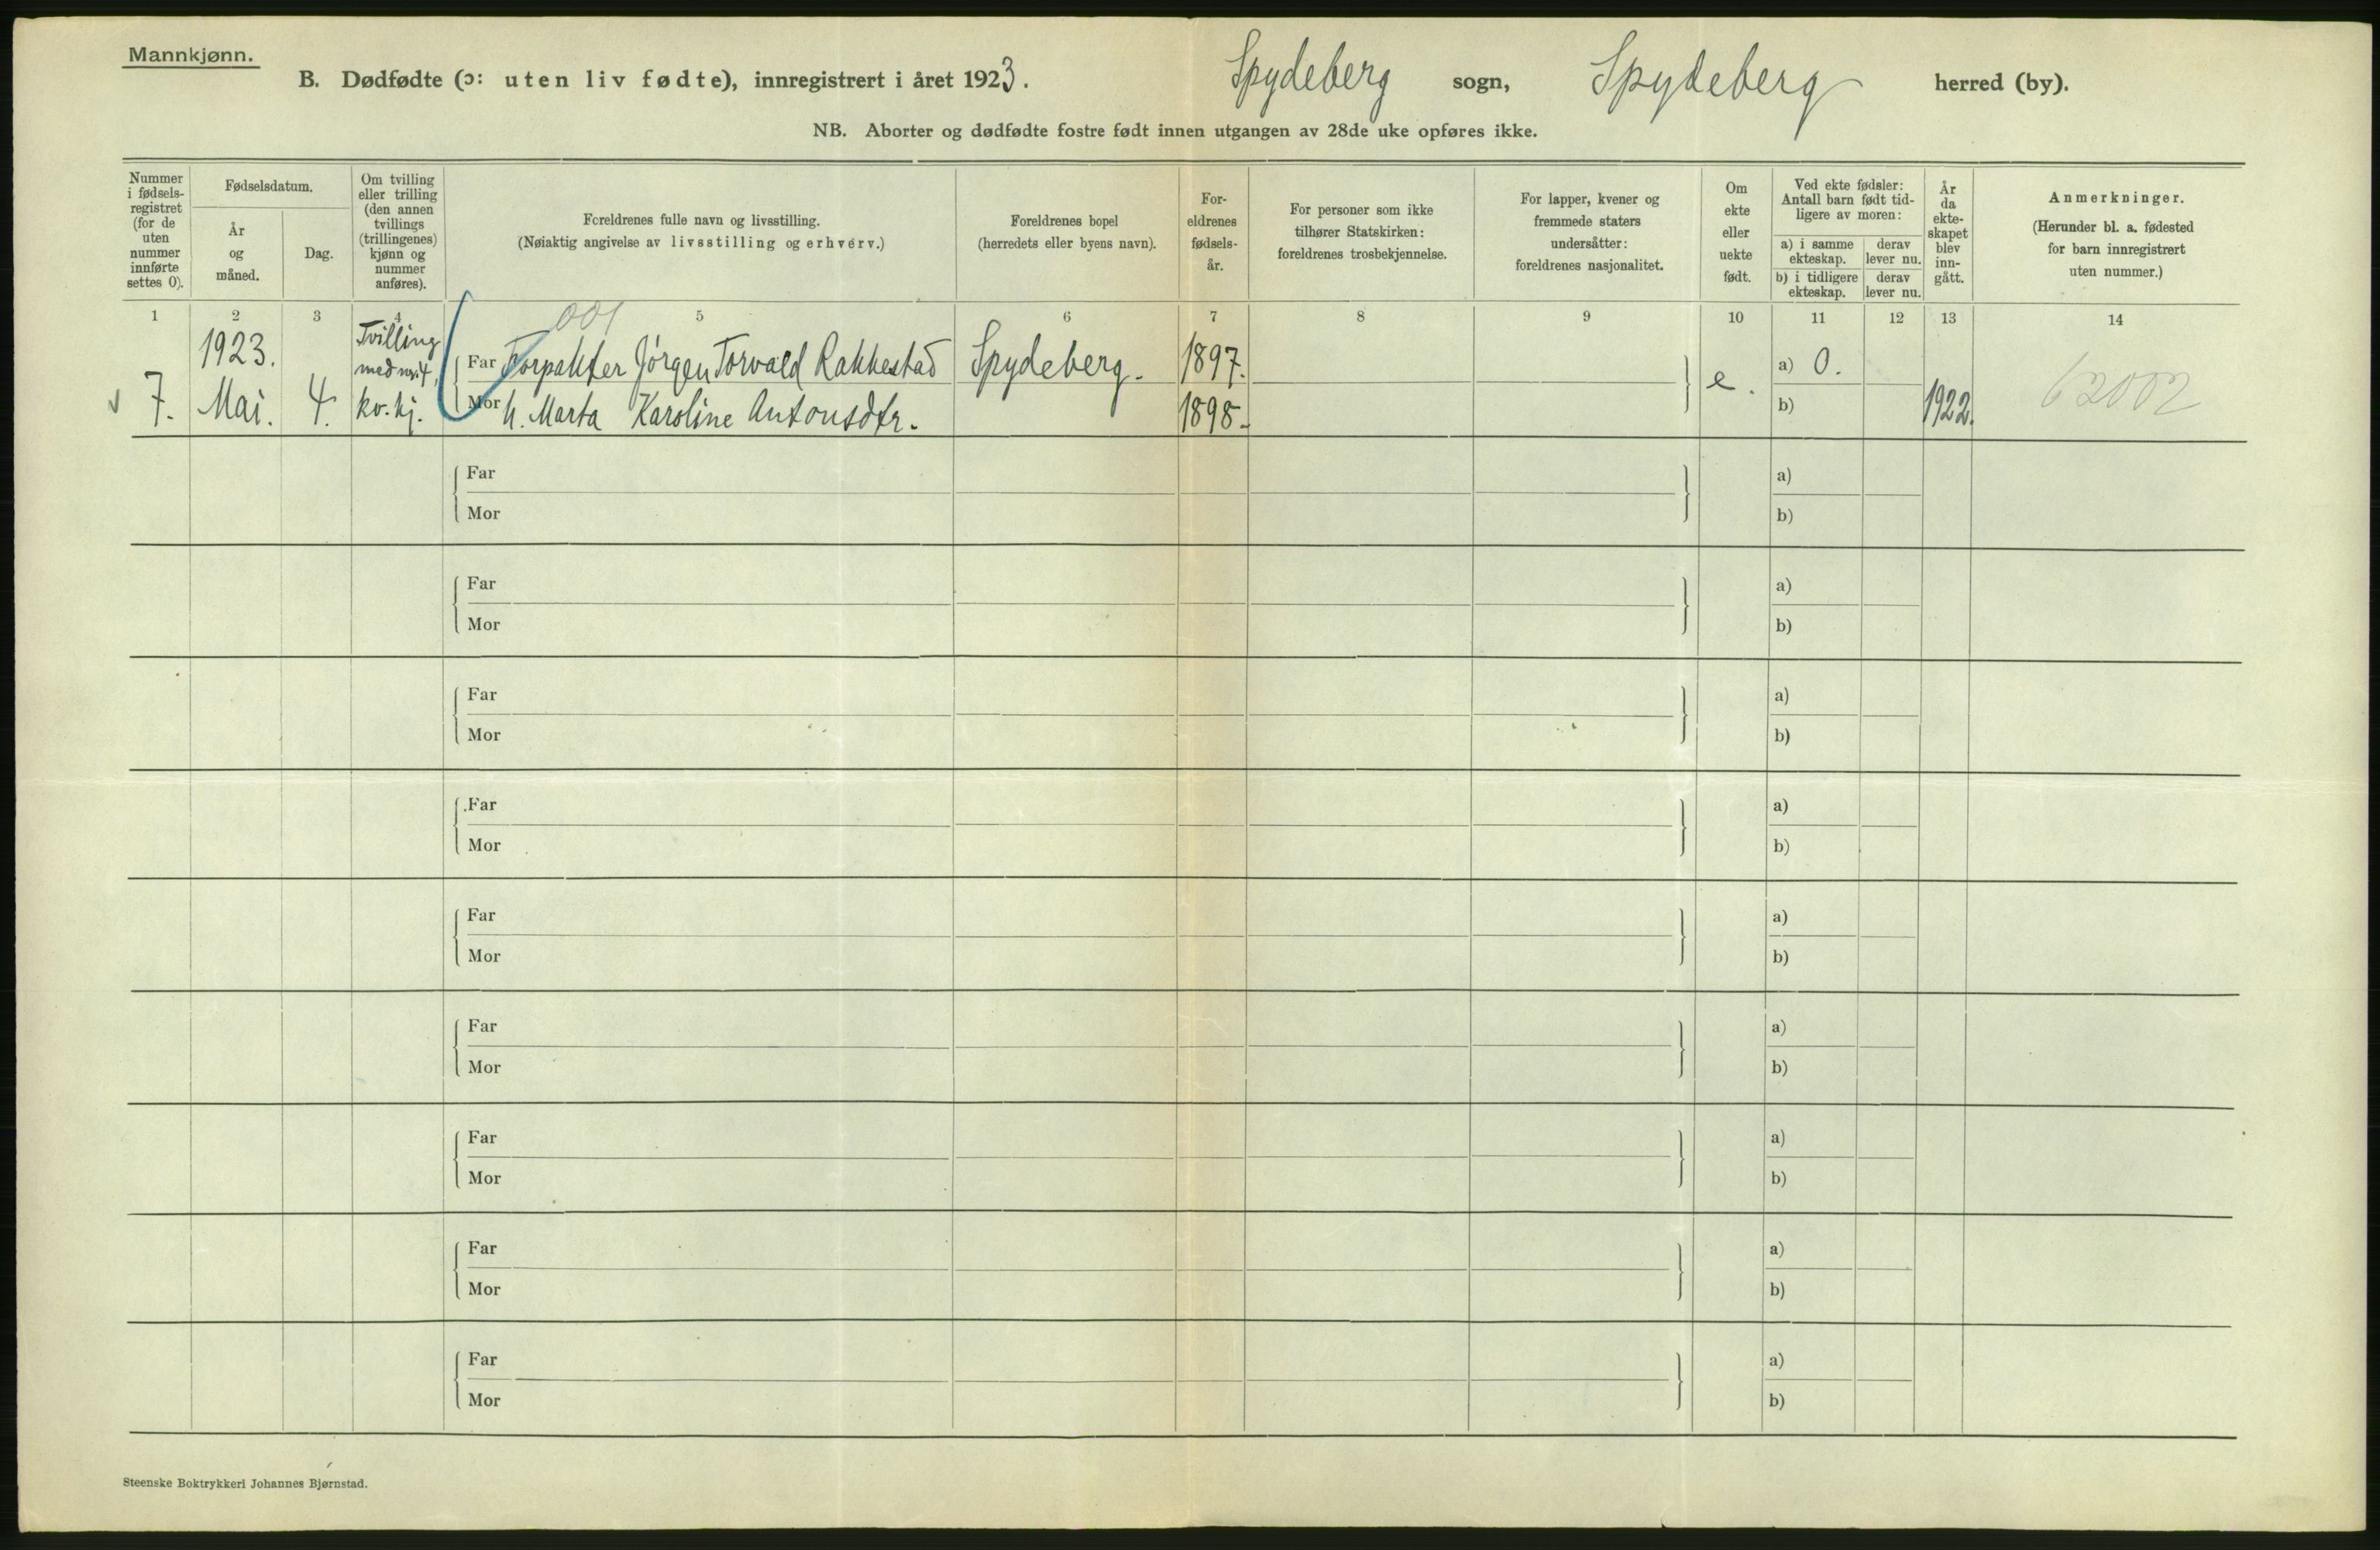 Mannkjønn.
B. Dødfødte (ɔ: uten liv fødte), innregistrert i året 1923. Spydeberg sogn, Spydeberg herred (by).
NB. Aborter og dødfødte fostre født innen utgangen av 28de uke opføres ikke.
Nummer i fødsels-registret (for de uten nummer innførte settes 0).
Fødselsdatum.
År og måned.
Dag.
Om tvilling eller trilling (den annen tvillings (trillingenes) kjønn og nummer anføres).
Foreldrenes fulle navn og livsstilling.
(Nøiaktig angivelse av livsstilling og erhverv.)
Foreldrenes bopel
(herredets eller byens navn).
For-eldrenes fødsels-år.
For personer som ikke tilhører Statskirken: foreldrenes trosbekjennelse.
For lapper, kvener og fremmede staters undersåtter: foreldrenes nasjonalitet.
Om ekte eller uekte født.
Ved ekte fødsler: Antall barn født tid-ligere av moren:
a) i samme ekteskap.
derav lever nu.
b) i tidligere ekteskap.
derav lever nu.
År da ekte-skapet blev inn-gått.
Anmerkninger.
(Herunder bl. a. fødested for barn innregistrert uten nummer.)
1 2 3 4 5 6 7 8 9 10 11 12 13 14
001
7. 1923. Mai. 4. Tvilling med nr. 4, kv. kj.
Far Forpakter Jørgen Torvald Rakkestad Spydeberg. 1897. e. a) 0.
Mor h. Marta Karoline Antonsdtr. 1898. b) 1922.
62002
Far a)
Mor b)
Far a)
Mor b)
Far a)
Mor b)
Far a)
Mor b)
Far a)
Mor b)
Far a)
Mor b)
Far a)
Mor b)
Far a)
Mor b)
Far a)
Mor b)
Steenske Boktrykkeri Johannes Bjørnstad.